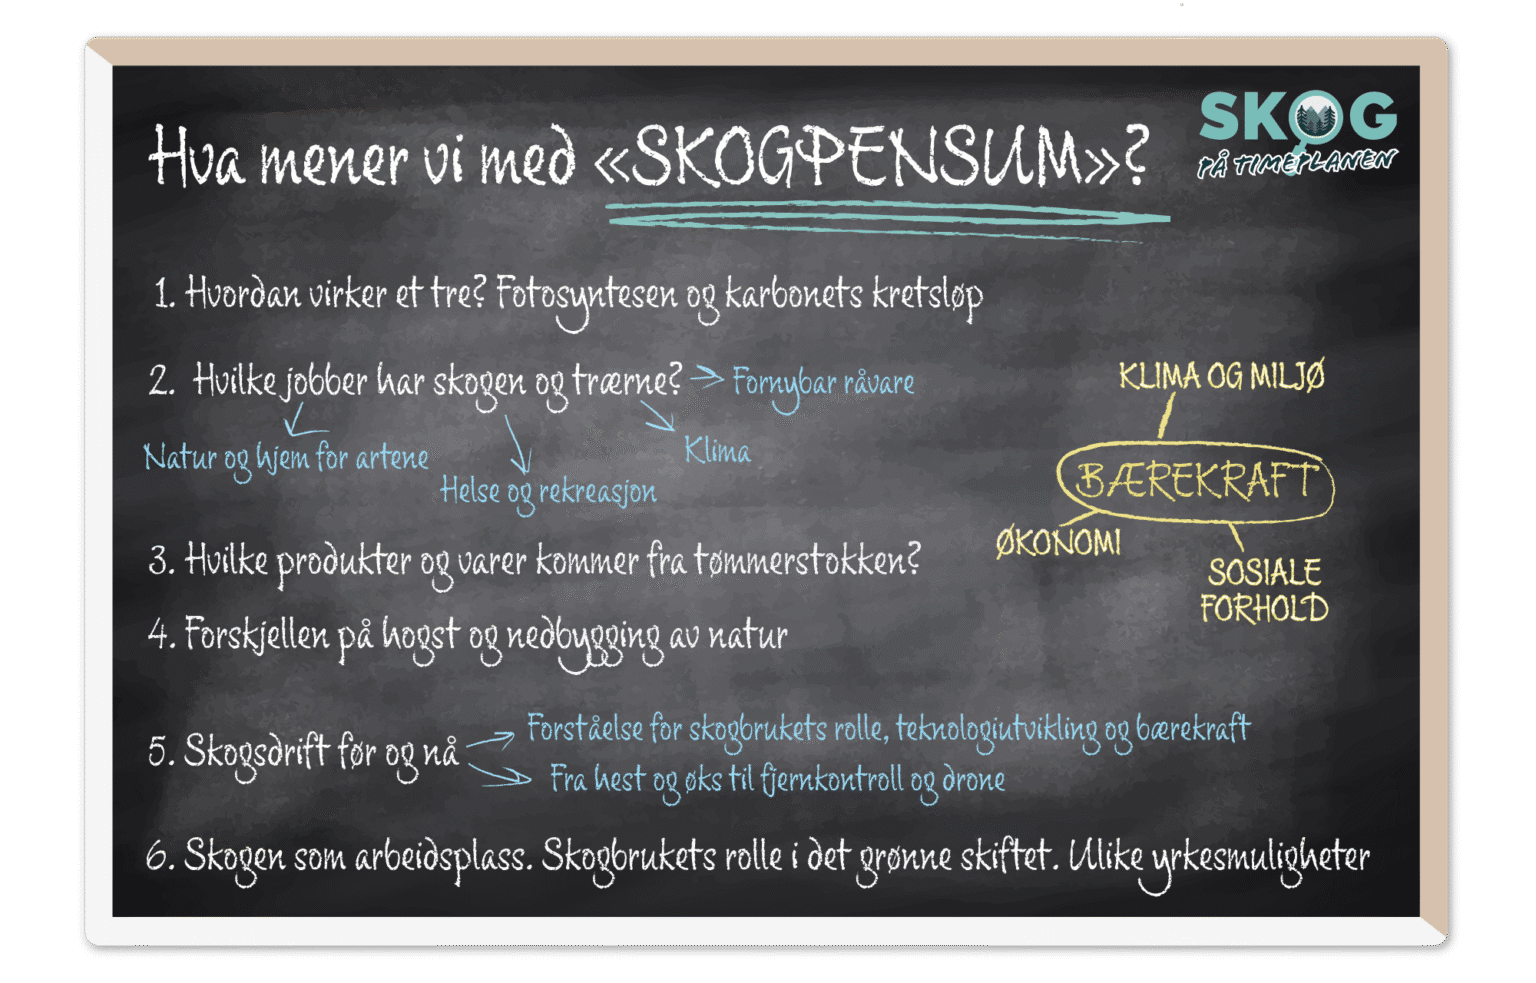 Hva mener vi med «SKOGPENSUM»?
SKOG
PÅ TIMEPLANEN
1. Hvordan virker et tre? Fotosyntesen og karbonets kretsløp
2. Hvilke jobber har skogen og trærne?
Fornybar råvare
Natur og hjem for artene
Helse og rekreasjon
Klima
KLIMA OG MILJØ
BÆREKRAFT
ØKONOMI
SOSIALE
FORHOLD
3. Hvilke produkter og varer kommer fra tømmerstokken?
4. Forskjellen på hogst og nedbygging av natur
5. Skogsdrift før og nå
Forståelse for skogbrukets rolle, teknologiutvikling og bærekraft
Fra hest og øks til fjernkontroll og drone
6. Skogen som arbeidsplass. Skogbrukets rolle i det grønne skiftet. Ulike yrkesmuligheter